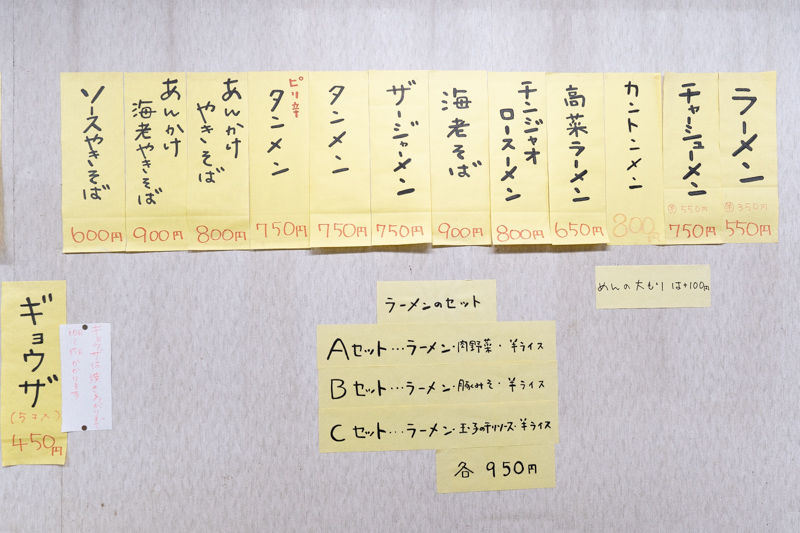 ラーメン
550円
チャーシューメン
550円
750円
カントンメン
800円
高菜ラーメン
650円
チンジャオ
ロースーメン
800円
海老そば
900円
ザージャーメン
750円
タンメン
750円
ピリ辛
タンメン
750円
あんかけ
やきそば
800円
あんかけ
海老やきそば
900円
ソースやきそば
600円
めんの大もりは+100円
ラーメンのセット
Aセット…ラーメン・肉野菜・半ライス
Bセット…ラーメン・豚くみそ・半ライス
Cセット…ラーメン・玉子のチリソース・半ライス
各950円
ギョウザ
(5コ入)
450円